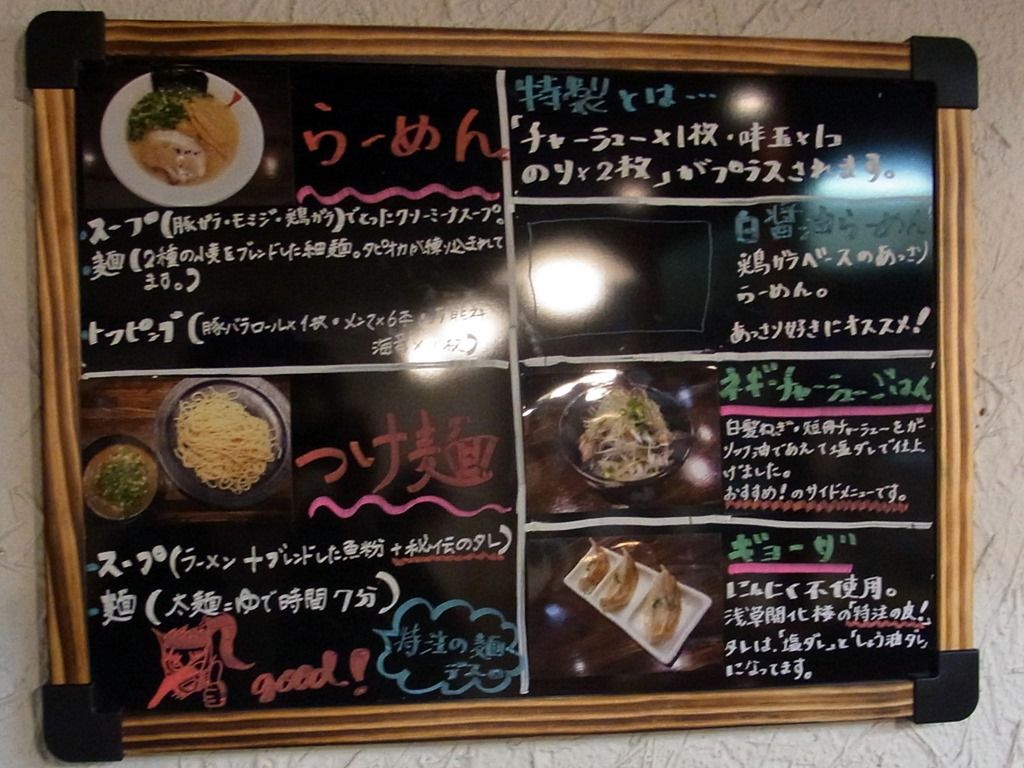 らーめん
・スープ(豚ガラ・モミジ・鶏ガラ)でとったクリーミーナスープ。
・麺(2種の小麦をブレンドした細麺。タピオカが練り込まれて
ます。)
・トッピング(豚バラロール×1枚・メンマ×6本・
海苔×1枚)
つけ麺
・スープ(ラーメン+ブレンドした魚粉+秘伝のタレ)
・麺(太麺=ゆで時間7分)
good!
特注の麺
デス。
特製とは…
「チャーシュー×1枚・味玉×1コ
のり×2枚」がプラスされます。
白醤油らーめん
鶏ガラベースのあっさり
らーめん。
あっさり好きにオススメ!
ネギチャーシューごはん
白髪ねぎ・短冊チャーシューをガ
ーリック油であえて塩ダレで仕上
げました。
おすすめ!のサイドメニューです。
ギョーザ
にんにく不使用。
浅草開化楼の「特注の皮!
タレは、「塩ダレ」と「しょう油ダレ
になってます。